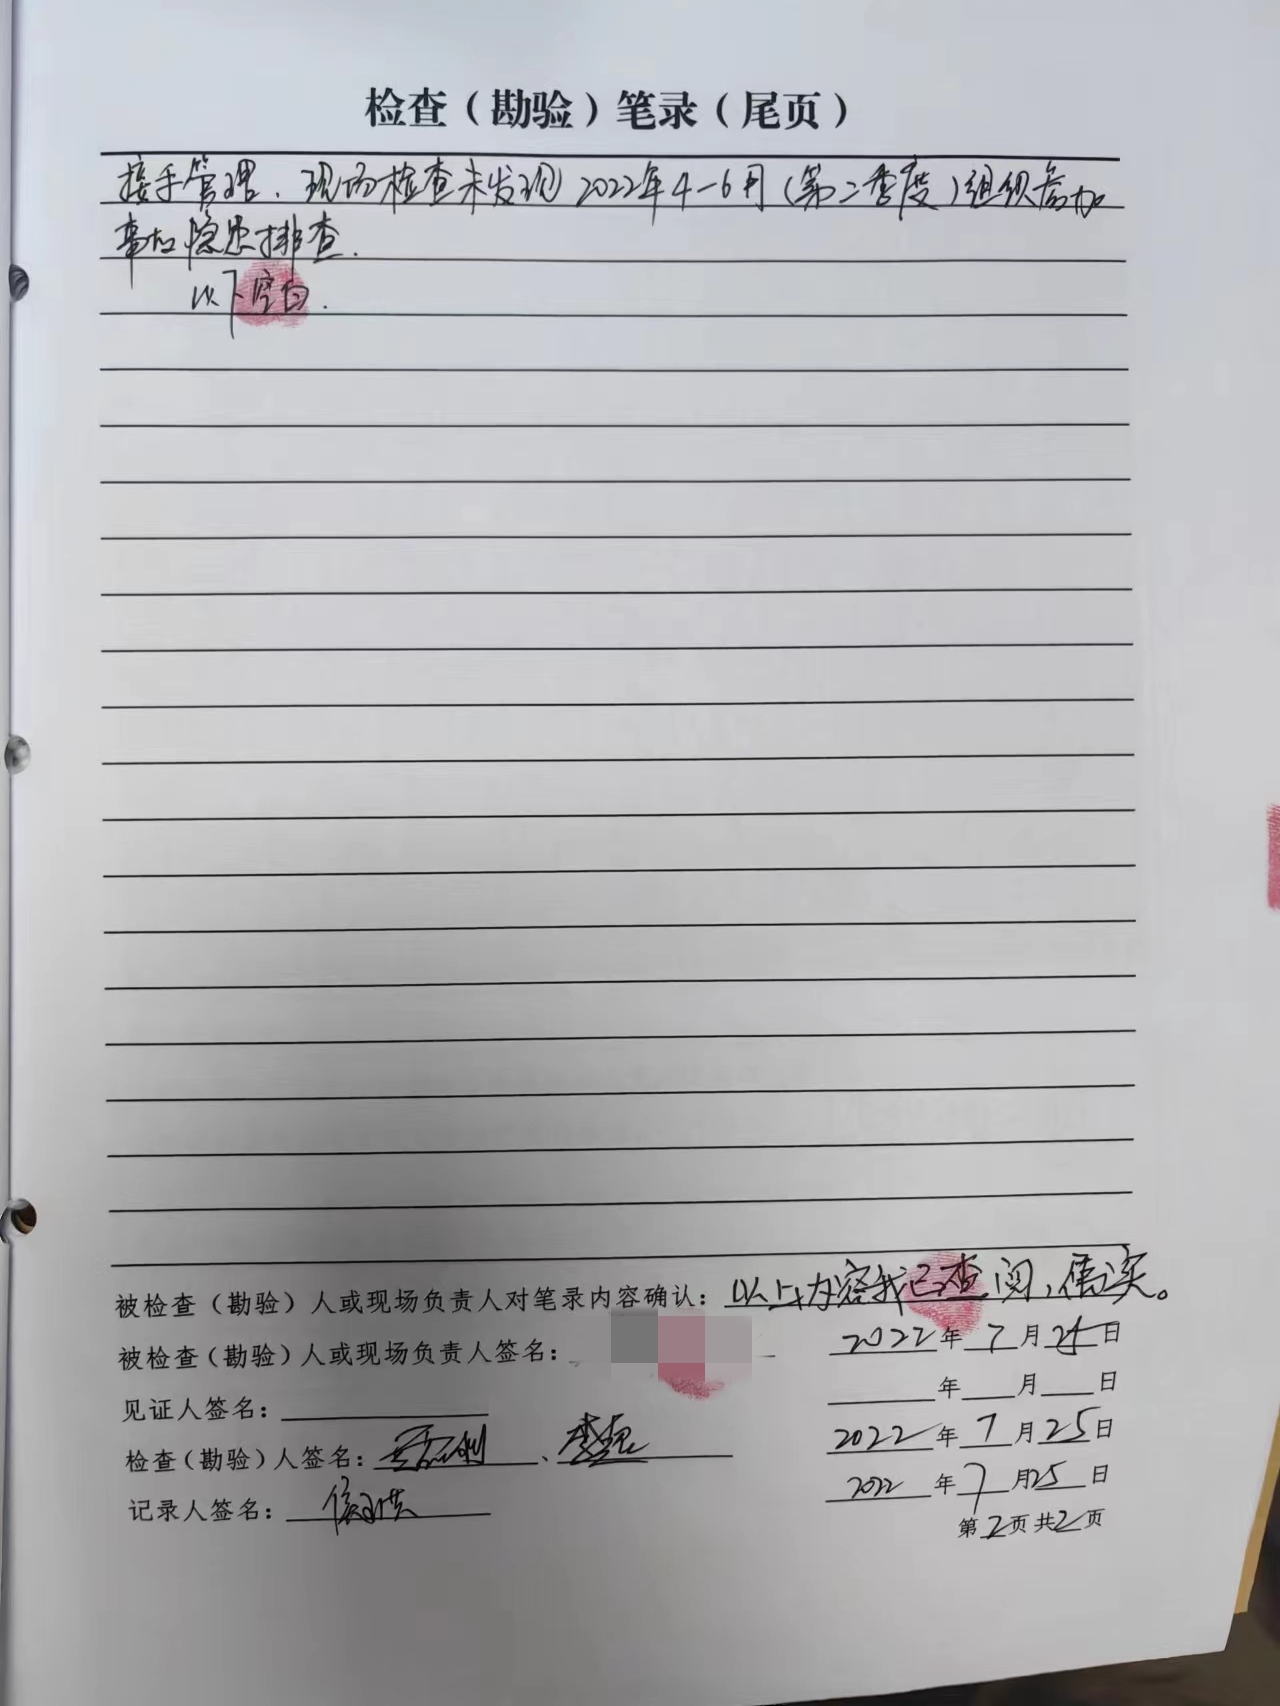 检查（勘验）笔录（尾页）
接手管理．现场检查未发现2022年4-6月（第二季度）组织参加
事故隐患排查．
以下空白．
被检查（勘验）人或现场负责人对笔录内容确认：以上内容我已查阅，属实。
被检查（勘验）人或现场负责人签名： 2022年7月25日
见证人签名： 年 月 日
检查（勘验）人签名： 、 2022年7月25日
记录人签名： 2022年7月25日
第2页共2页